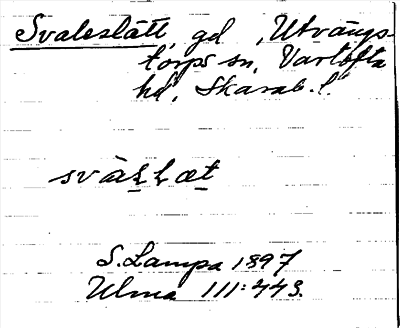 Svaleslätt, gd, Utvängs-
torps sn, Vartofta
hd, Skarab. l.
svàḷḷæt
S. Lampa 1897
Ulma 111:443.